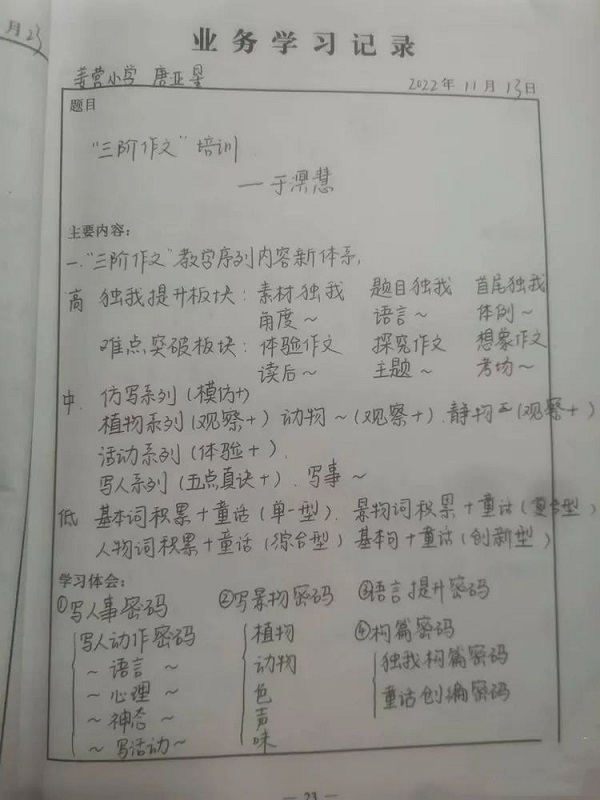 月23
业务学习记录
姜营小学 唐亚星 2022年11月13日
题目
"三阶作文"培训
—于溟慧
主要内容:
一."三阶作文"教学序列内容新体系,
高 独我提升板块:素材独我 题目独我 首尾独我
角度~ 语言~ 体例~
难点突破板块:体验作文 探究作文 想象作文
读后~ 主题~ 考场~
中. 仿写系列(模仿+)
植物系列(观察+) 动物~(观察+).静物~(观察+)
活动系列(体验+),
写人系列(五点真诀+).写事~
低 基本词积累+童话(单一型). 景物词积累+童话(复合型)
人物词积累+童话(综合型) 基本句+童话(创新型)
学习体会:
①写人事密码 ②写景物密码 ③语言提升密码
写人动作密码 植物 ④构篇密码
~语言~ 动物 独我构篇密码
~心理~ 色 童话创编密码
~神态~ 声
~写活动~ 味
— 23 —